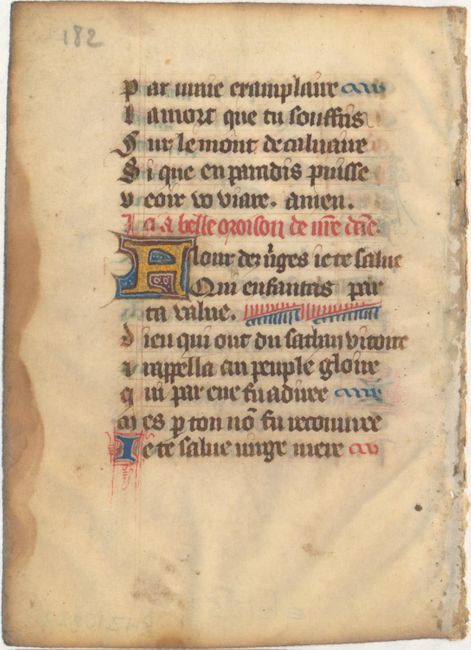 182
Par vraie examplaire
La mort que tu souffris
Sur le mont de caluaire
Si que en paradis puisse
veoir vo viaire. amen.
Ici a belle oroison de nr̄e dāe.
Flour de v̄ges ie te salue
Qui enfantas par
ta value.
dieu qui ont du sathan victoire
rappella au peuple gloire
qui par eue fu
mes p ton nō fu recouuree
Ie te salue uirge mere